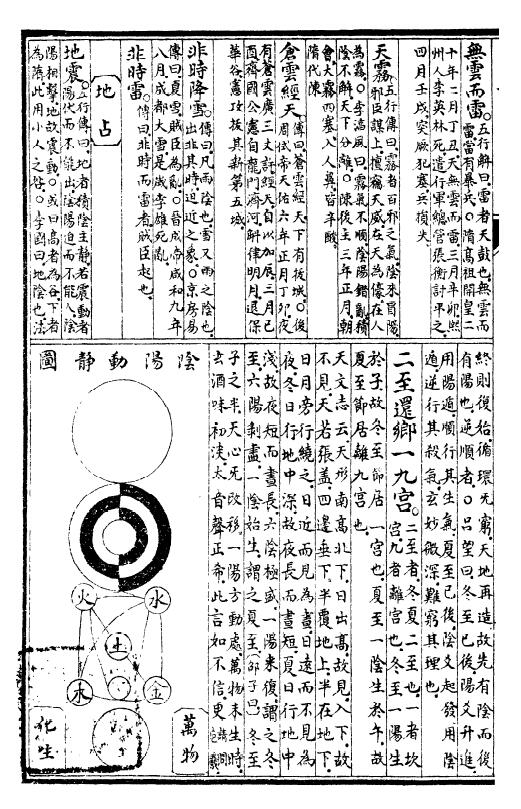 無雲而雷。五行解曰。雷者天鼓也。無雲而
雷當有暴兵。○隋高祖開皇二
十年二月丁丑天無雲而雷三月辛卯熙
州人李英林死遣行軍總管張衡討平之
四月壬戌突厥犯塞兵復失
天霧。五行傳曰霧者百邪之氣陰來冒陽
邪臣謀上擅竊天威在天為濛在人
為霧○李淳風曰霧氣不順陰陽錯亂積
陰不解天下分離○陳後主三年正月朝
會大霧四塞入人鼻皆辛酸
隋代陳
蒼雲經天。傳曰蒼雲經天下有拔城○後
周武帝天佑六年正月丁卯夜
有蒼雲廣三丈許經天自以加辰三月己
酉齊國公憲自龍門濟河斛律明月退保
華谷憲攻拔其新築五城
非時降雪。傳曰凡雨陰也雪又雨之陰也
出非其時迫近之象○京房易
傳曰夏雪賊臣為亂○晉成帝咸和九年
八月成都大雪是歲李雄死
非時雷。傳曰非時而雷者賊臣起也
地占
地震。五行傳曰地者積陰主靜若震動者
陽伏而不能出陰陽迫而不能入陰
陽相擊地故震動○或曰高者為谷下者
為隋此用小人之咎○李固曰地陰也法
終則復始循環无窮天地再造故先有陰而後
有陽也逆順者○呂望曰冬至已後陽爻升進
用陽遁順行其生氣夏至已後陰爻起發用陰
遁逆行其殺氣玄妙微深難窮其理也
二至還鄉一九宫。二至者冬夏二至也一者坎
宫九者離宫也冬至一陽生
於子故冬至節居一宫也夏至一陰生於午故
夏至節居離九宫也
天文志云天形南高北下日出高故見入下故
不見天若張盖四邊垂下半覆地上半在地下
日月旁行繞之日近而見為晝日遠而不見為
夜冬日行地中深故夜長而晝短夏日行地中
淺故夜短而晝長六陰極盛一陽來復謂之冬
至六陽剥盡一陰始生謂之夏至邵子曰冬至
子之半天心无改移一陽方動處萬物未生時
玄酒味初淡太音聲正希此言如不信更
陰陽動靜圖
火
水
土
木
金
萬物
化生